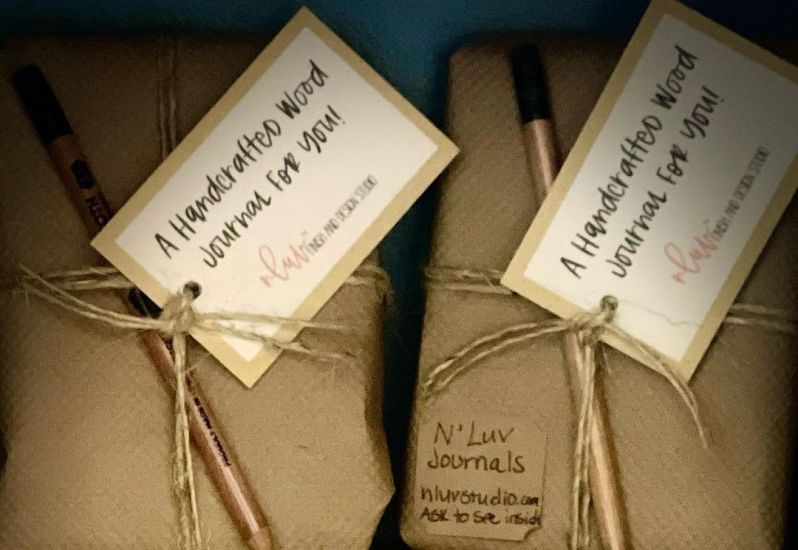 A Handcrafted Wood
Journal For You!
nluv FINDS AND DESIGN STUDIO
A Handcrafted Wood
Journal For You!
nluv FINDS AND DESIGN STUDIO
N'Luv
Journals
nluvstudio.com
Ask to see inside